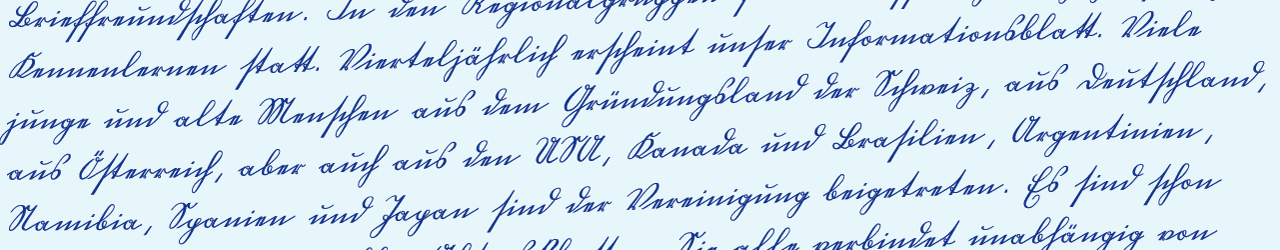 Brieffreundschaften. In den Regionalgruppen
Kennenlernen statt. Vierteljährlich erscheint unser Informationsblatt. Viele
junge und alte Menschen aus dem Gründungsland der Schweiz, aus Deutschland,
aus Österreich, aber auch aus den USA, Kanada und Brasilien, Argentinien,
Namibia, Spanien und Japan sind der Vereinigung beigetreten. Es sind schon
Sie alle verbindet unabhängig von